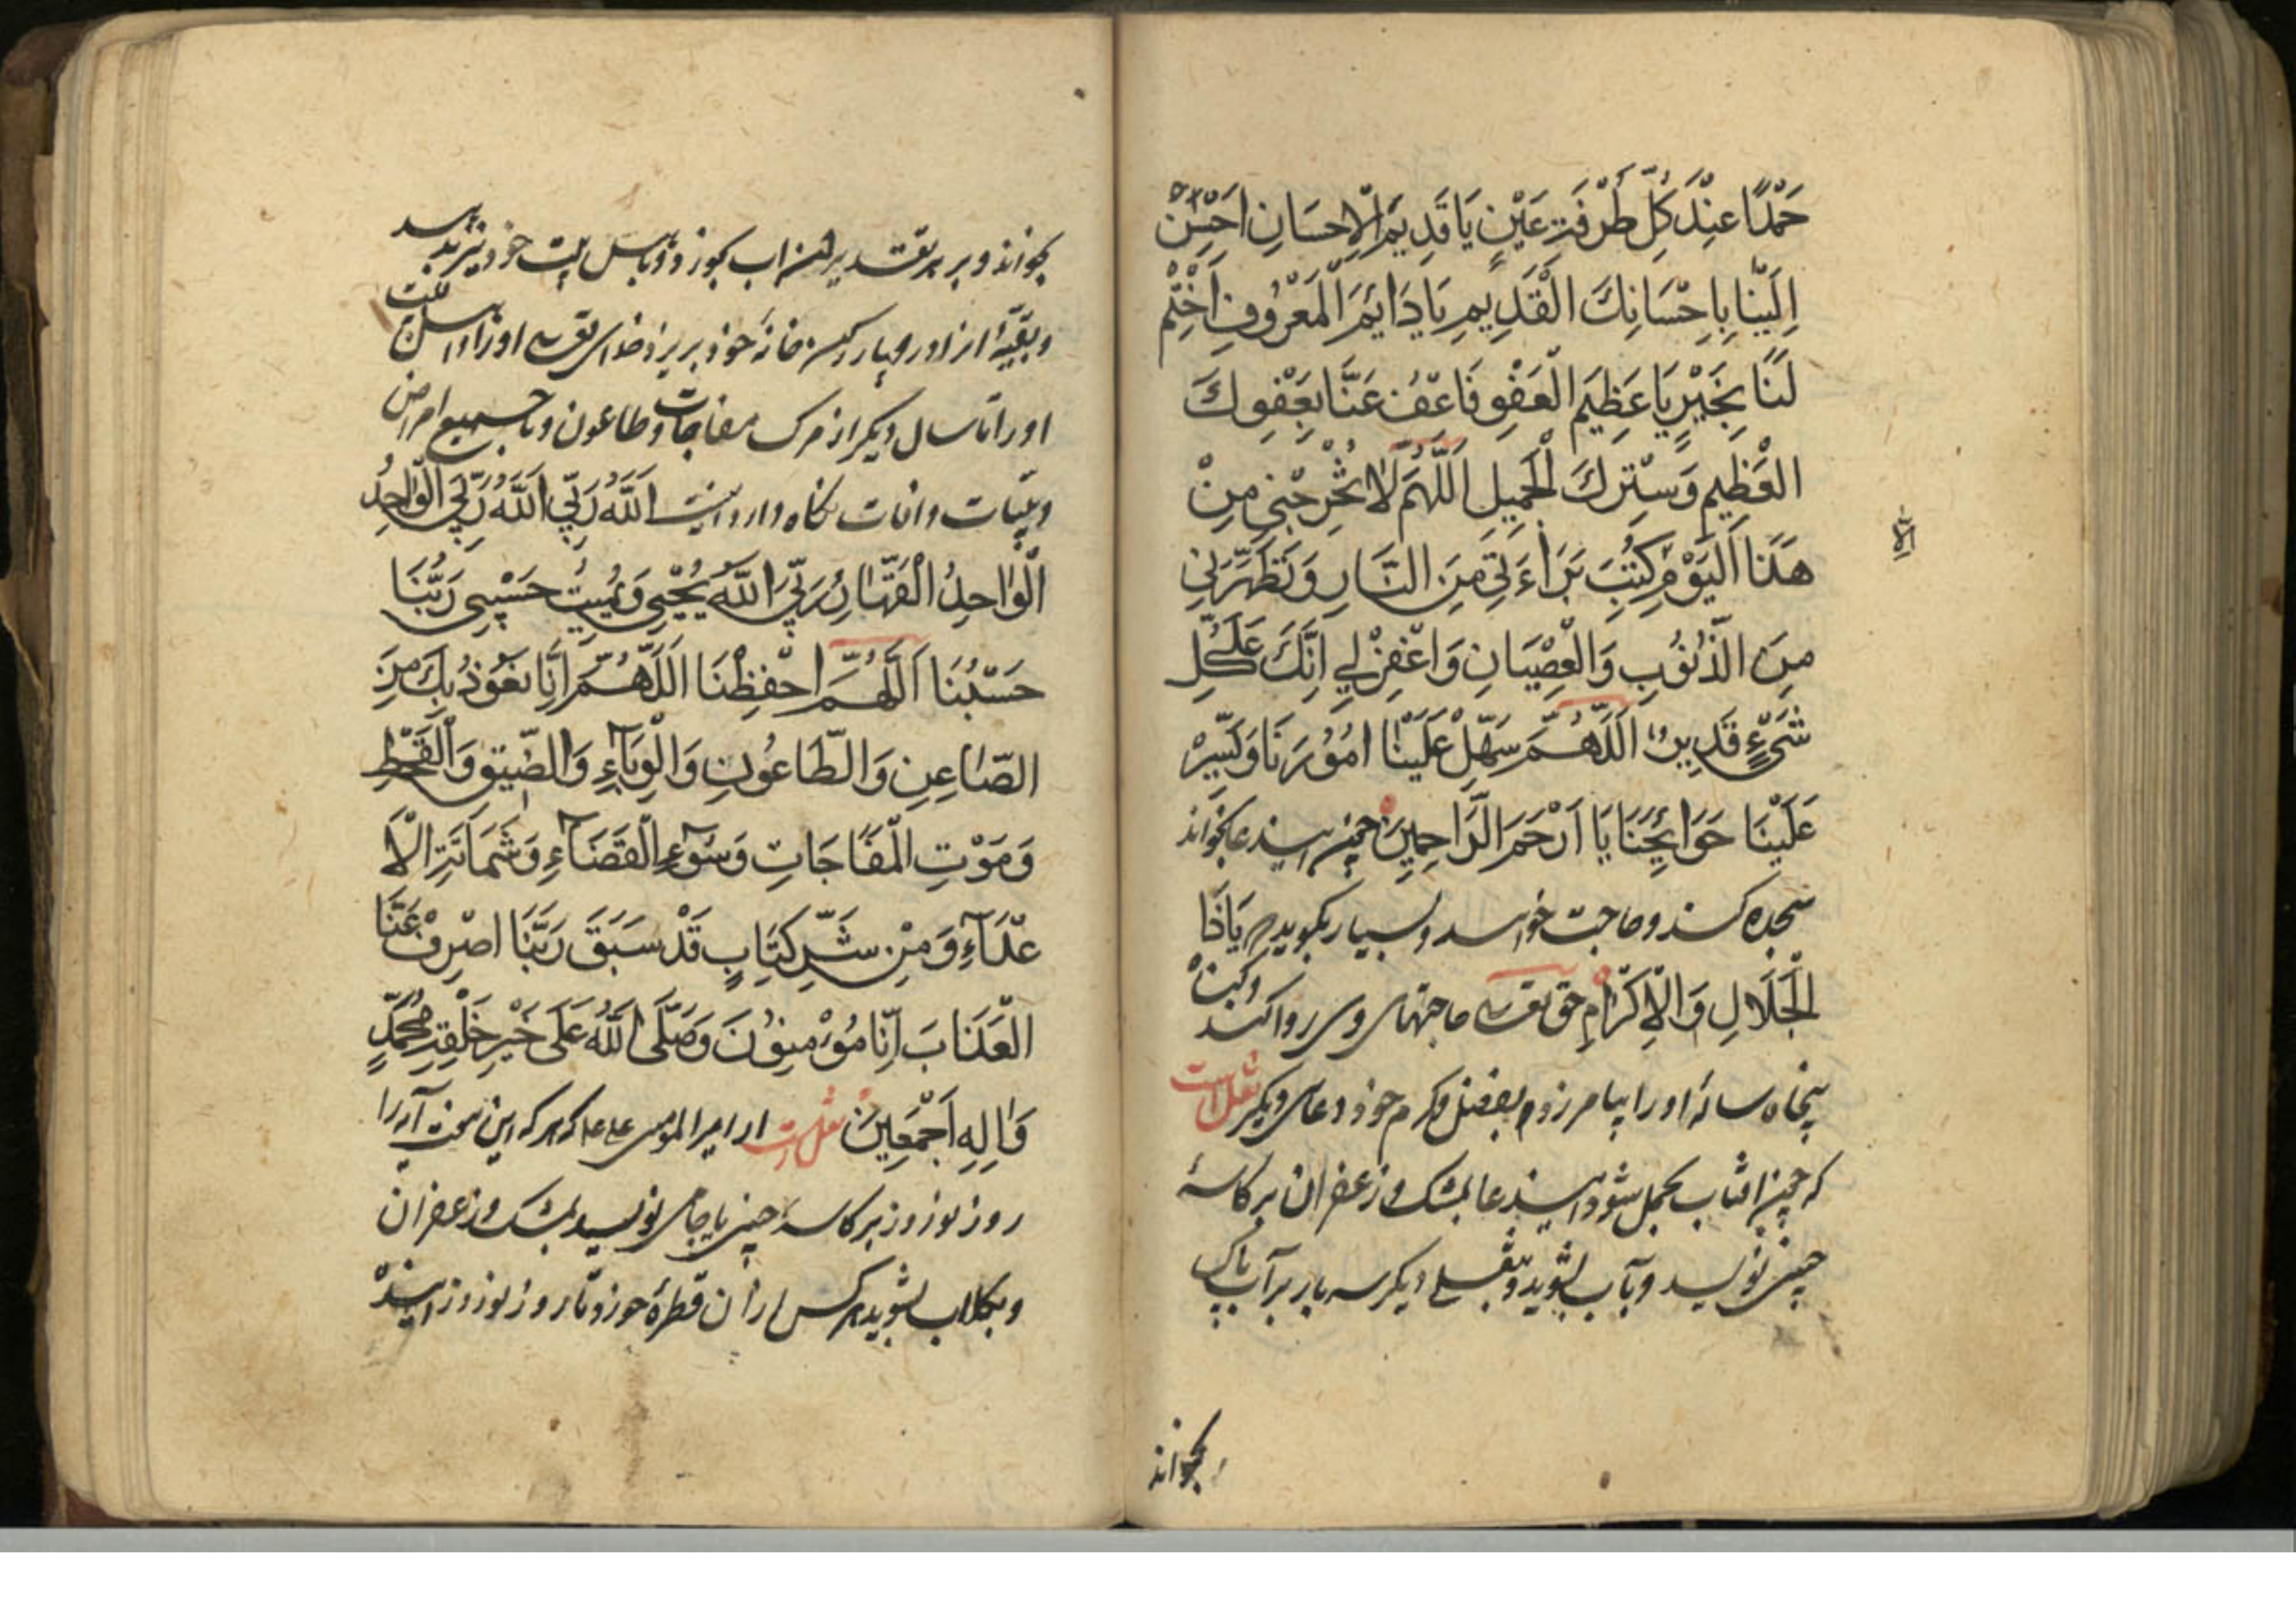 حَمْدًا عِنْدَ كُلِّ طَرْفَةِ عَيْنٍ يَا قَدِيمَ الْاِحْسَانِ اَحْسِنْ
اِلَيْنَا بِاِحْسَانِكَ الْقَدِيمِ يَا دَايِمَ الْمَعْرُوفِ اَخْتِمْ
لَنَا بِخَيْرٍ يَا عَظِيمَ الْعَفْوِ فَاعْفُ عَنَّا بِعَفْوِكَ
الْعَظِيمِ وَسِتْرِكَ الْجَمِيلِ اَللّٰهُمَّ لَا تُخْرِجْنِي مِنْ
هَذَا الْيَوْمِ كُتِبَ بَرَاءَتِي مِنَ النَّارِ وَتُطَهِّرَنِي
مِنَ الذُّنُوبِ وَالْعِصْيَانِ وَاغْفِرْ لِي اِنَّكَ عَلَى كُلِّ
شَيْءٍ قَدِيرٌ اَللّٰهُمَّ سَهِّلْ عَلَيْنَا اُمُورَنَا وَيَسِّرْ
عَلَيْنَا حَوَائِجَنَا يَا اَرْحَمَ الرَّاحِمِينَ چون این دعا بخواند
سجده کند و حاجت خواهد و بسیار بگوید یَا ذَا
الْجَلَالِ وَالْاِكْرَامِ حق تعالی حاجتهای وی روا کند
پنجاه ساله او را بیامرزد بفضل و کرم خود دعای دیگر نقل است
که چون افتاب بحمل شود این دعا بمشک و زعفران بر کاسهٔ
چینی نویسد و بآب بشوید و دیگر سه بار بر آب پاک
بخواند
بخواند و بر هر تقدیر اب بخورد و باهل بیت خود نیز بدهد
و بقیّهٔ انرا در خانهٔ خود بریزد خدای تعالی او را و اهل بیت
او را تا سال دیگر از مرک مفاجات و طاعون و وبا و جمیع امراض
و بلیّات و افات نگاه دارد اینست اَللّٰهُ رَبِّي اَللّٰهُ رَبِّيَ الْوَاحِدُ
الْوَاحِدُ الْقَهَّارُ رَبِّيَ اللّٰهُ يُحْيِي وَيُمِيتُ حَسْبِي رَبُّنَا
حَسْبُنَا اَللّٰهُمَّ احْفِظْنَا اَللّٰهُمَّ اِنَّا نَعُوذُ بِكَ مِنَ
الطَّاعُونِ وَالْوَبَآءِ وَالضِّيقِ وَالْقَحْطِ
وَمَوْتِ الْمُفَاجَاتِ وَسُوءِ الْقَضَآءِ وَشَمَاتَةِ الْاَ
عْدَآءِ وَمِنْ شَرِّ كِتَابٍ قَدْ سَبَقَ رَبَّنَا اصْرِفْ عَنَّا
الْعَذَابَ اِنَّا مُؤْمِنُونَ وَصَلَّى اللّٰهُ عَلَى خَيْرِ خَلْقِهِ مُحَمَّدٍ
وَاٰلِهِ اَجْمَعِينَ نقل است از امیر المومنین علی که هر که این هفت آیه را
روز نوروز بر کاسهٔ چینی یا جامی نویسد بمشک و زعفران
و بکلاب بشوید هر کس از ان قطرهٔ خورد تا روز نوروز